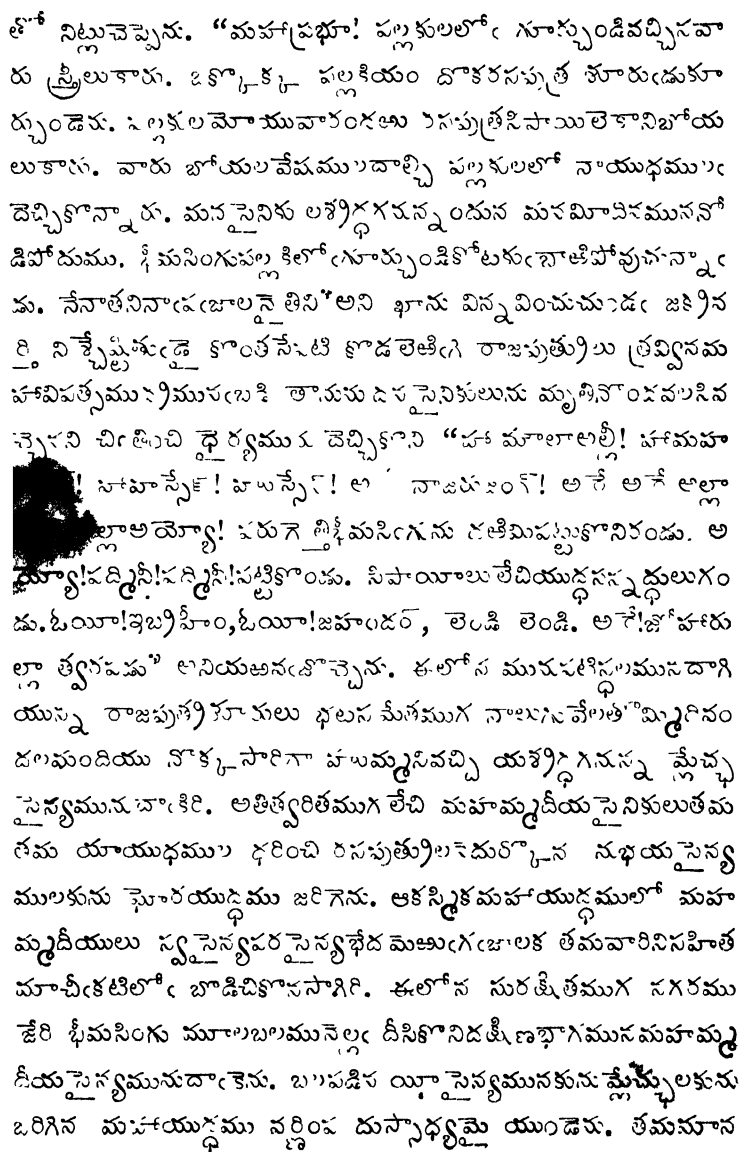 తో నిట్లుచెప్పెను. “మహాప్రభూ! పల్లకులలోఁ గూర్చుండివచ్చినవా
రు స్త్రీలుకారు. ఒక్కొక్క పల్లకియం దొకరసపుత్ర శూరుఁడుకూ
ర్చుండెను. పల్లకులమోయువారందఱు రసపుత్రసిపాయిలెకానిబోయ
లుకారు. వారు బోయలవేషములదాల్చి పల్లకులలో నాయుధములఁ
దెచ్చికొన్నారు. మనసైనికు లశ్రద్ధగనున్నందున మనమిాదినముననో
డిపోదుము. భీమసింగుపల్లకిలోఁగూర్చుండికోటకుఁబాఱిపోవుచున్నాఁ
డు. నేనాతనినాఁపఁజాలనైతిని” అని ఖాను విన్నవించుచుండఁ జక్రవ
ర్తి నిశ్చేష్టితుఁడై కొంతసేపటి కొడలెఱిఁగి రాజపుత్రులు త్రవ్వినమ
హావిపత్సముద్రమునఁబడి తానును దనసైనికులును మృతినొందవలసిన
చ్చెనని చింతించి ధైర్యముకు దెచ్చికొని “హా మాలాఅల్లీ! హామహ
! హాహస్సేన్! హుస్సేన్! అ నాజరుజంగ్! అరే అరే అల్లా
ల్లాఅయ్యో! పరుగెత్తిభీమసింగును దఱిమిపట్టుకొనిరండు. అ
య్యో!పద్మినీ!పద్మినీ!పట్టికొండు. సిపాయీలులేచియుద్ధసన్నద్ధులుగం
డు.ఓయీ!ఇబ్రహీం,ఓయీ!జహందర్, లెండి లెండి. అరే!జోహారు
ల్లా త్వరపడు” అనియఱవఁజొచ్చెను. ఈలోన మునుపటిస్థలమునదాగి
యున్న రాజపుత్రకూమలు భటసమేతముగ నాలుగువేలతొమ్మిదినం
దలమందియు నొక్కసారిగా హుమ్మనివచ్చి యశ్రద్ధగనున్న మ్లేచ్ఛ
సైన్యమునుదాఁకిరి. అతిత్వరితముగలేచి మహమ్మదీయసైనికులుతమ
తమ యాయుధముల ధరించి రసపుత్రులనెదుర్కొన నుభయసైన్య
ములకును ఘోరయుద్ధము జరిగెను. ఆకస్మికమహాయుద్ధములో మహ
మ్మదీయులు స్వసైన్యపరసైన్యభేదమెఱుఁగఁజాలక తమవారినిసహిత
మాచీఁకటిలోఁ బొడిచికొనసాగిరి. ఈలోన సురక్షితముగ నగరము
జేరి భీమసింగు మూలబలమునెల్లఁ దీసికొనిదక్షిణభాగమునమహమ్మ
దీయసైన్యమునుదాఁకెను. బలపడిన యీసైన్యమునకును మ్లేచ్ఛులకును
ఒరిగిన మహాయుద్ధము వర్ణింప దుస్సాధ్యమై యుండెను. తమనూన